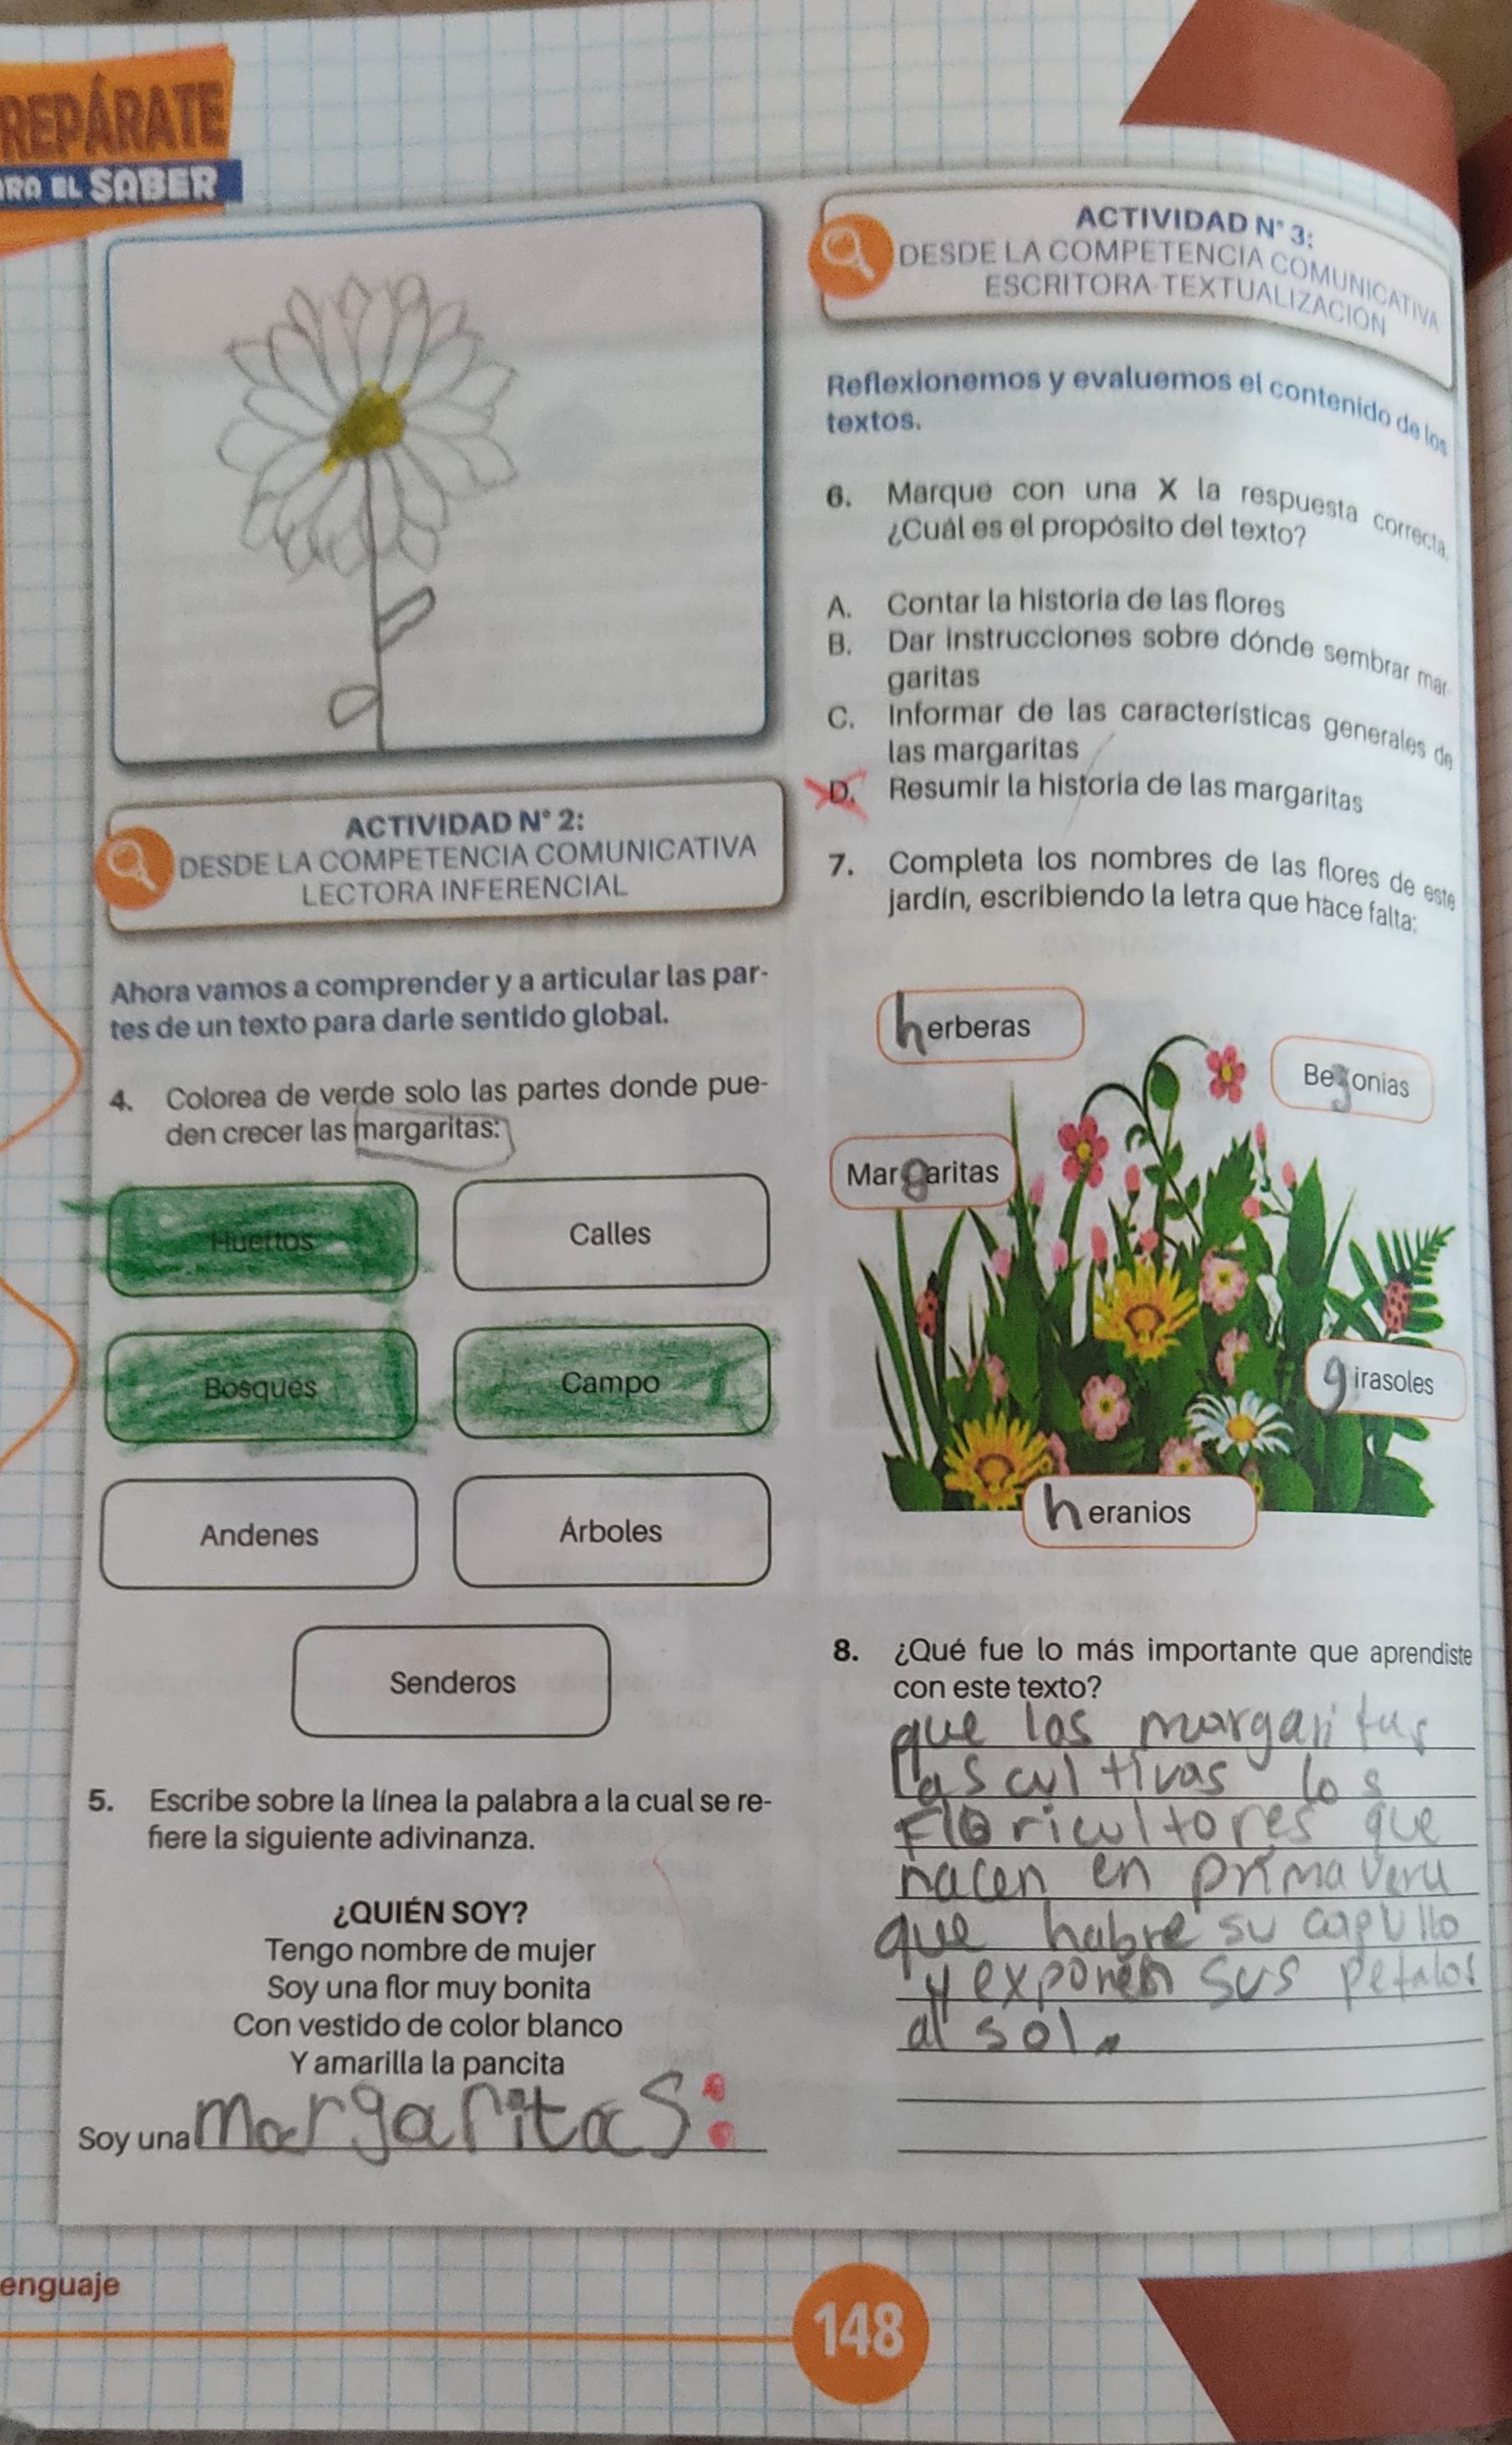 REPÁRATE
RA EL SABER
ACTIVIDAD N° 2:
DESDE LA COMPETENCIA COMUNICATIVA
LECTORA INFERENCIAL
Ahora vamos a comprender y a articular las par-
tes de un texto para darle sentido global.
4. Colorea de verde solo las partes donde pue-
den crecer las margaritas:
Huertos
Calles
Bosques
Campo
Andenes
Árboles
Senderos
5. Escribe sobre la línea la palabra a la cual se re-
fiere la siguiente adivinanza.
¿QUIÉN SOY?
Tengo nombre de mujer
Soy una flor muy bonita
Con vestido de color blanco
Y amarilla la pancita
Soy una margaritas:
ACTIVIDAD N° 3:
DESDE LA COMPETENCIA COMUNICATIVA
ESCRITORA-TEXTUALIZACIÓN
Reflexionemos y evaluemos el contenido de los
textos.
6. Marque con una X la respuesta correcta.
¿Cuál es el propósito del texto?
A. Contar la historia de las flores
B. Dar instrucciones sobre dónde sembrar mar
garitas
C. Informar de las características generales de
las margaritas
D. Resumir la historia de las margaritas
7. Completa los nombres de las flores de este
jardín, escribiendo la letra que hace falta:
herberas
Begonias
Margaritas
girasoles
heranios
8. ¿Qué fue lo más importante que aprendiste
con este texto?
que las margaritas
las cultivas los
Floricultores que
nacen en primavera
que habre su capullo
y exponen sus petalos
al sol.
enguaje
148